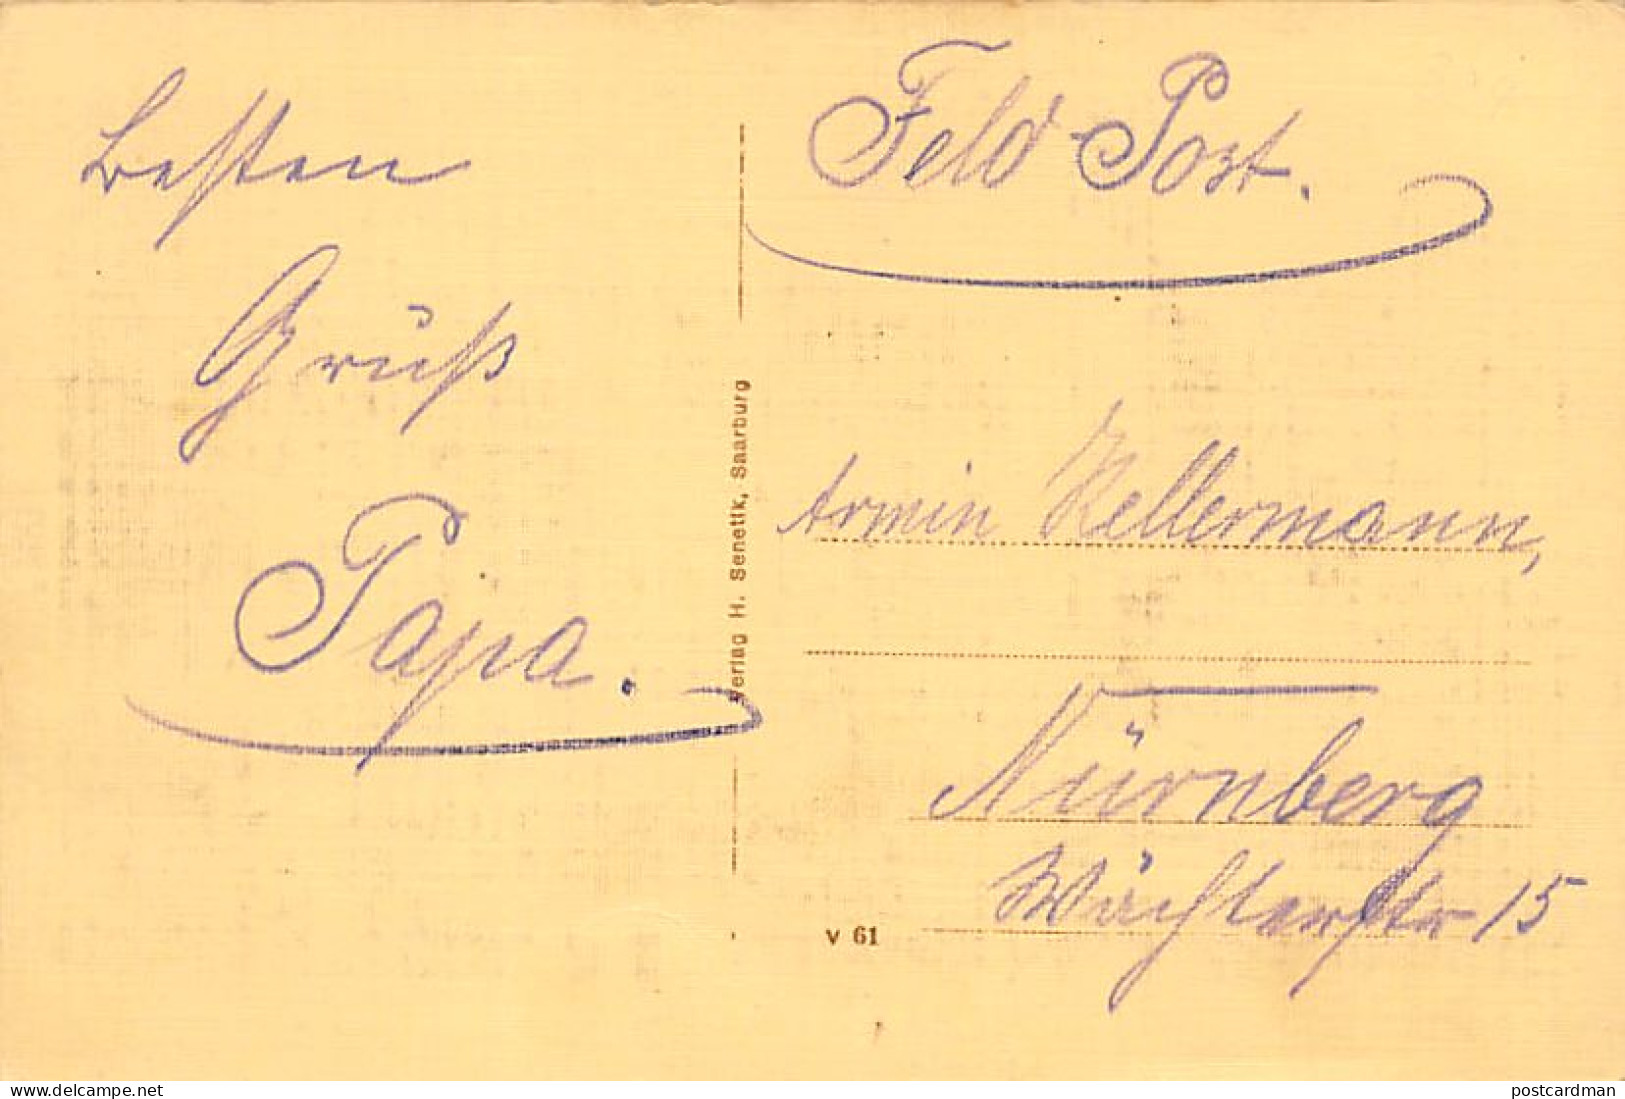 Besten
Gruß
Papa.
Verlag H. Senetik, Saarburg
Feld-Post.
Armin Kellermann,
Nürnberg
15
V 61
www.delcampe.net
postcardman